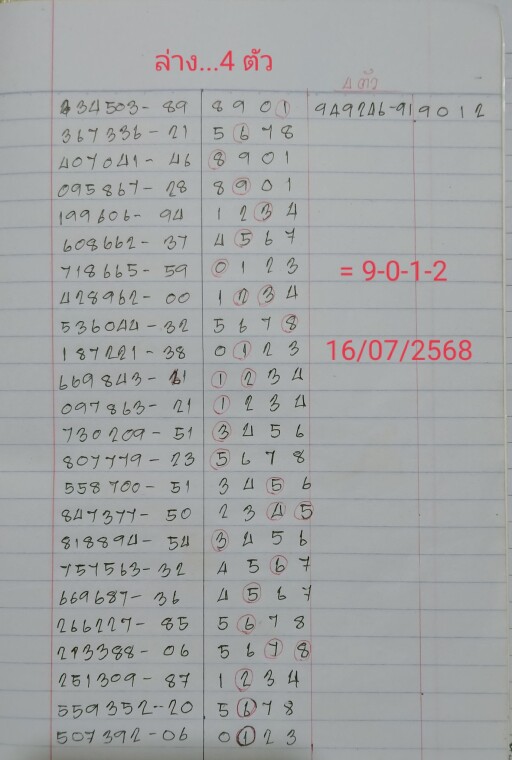 ล่าง...4 ตัว
4 ตัว
434503- 89 8 9 0 1 949246-91 9 0 1 2
367336- 21 5 6 7 8
407041- 46 8 9 0 1
095867- 28 8 9 0 1
199606- 94 1 2 3 4
608662- 37 4 5 6 7
718665- 59 0 1 2 3 = 9-0-1-2
428962- 00 1 2 3 4
536044- 32 5 6 7 8
187221- 38 0 1 2 3 16/07/2568
669843- 21 1 2 3 4
097863- 21 1 2 3 4
730209- 51 3 4 5 6
807779- 23 5 6 7 8
558700- 51 3 4 5 6
847377- 50 2 3 4 5
818894- 54 3 4 5 6
757563- 32 4 5 6 7
669687- 36 4 5 6 7
266227- 85 5 6 7 8
293388- 06 5 6 7 8
251309- 87 1 2 3 4
559352--20 5 6 7 8
507392-06 0 1 2 3